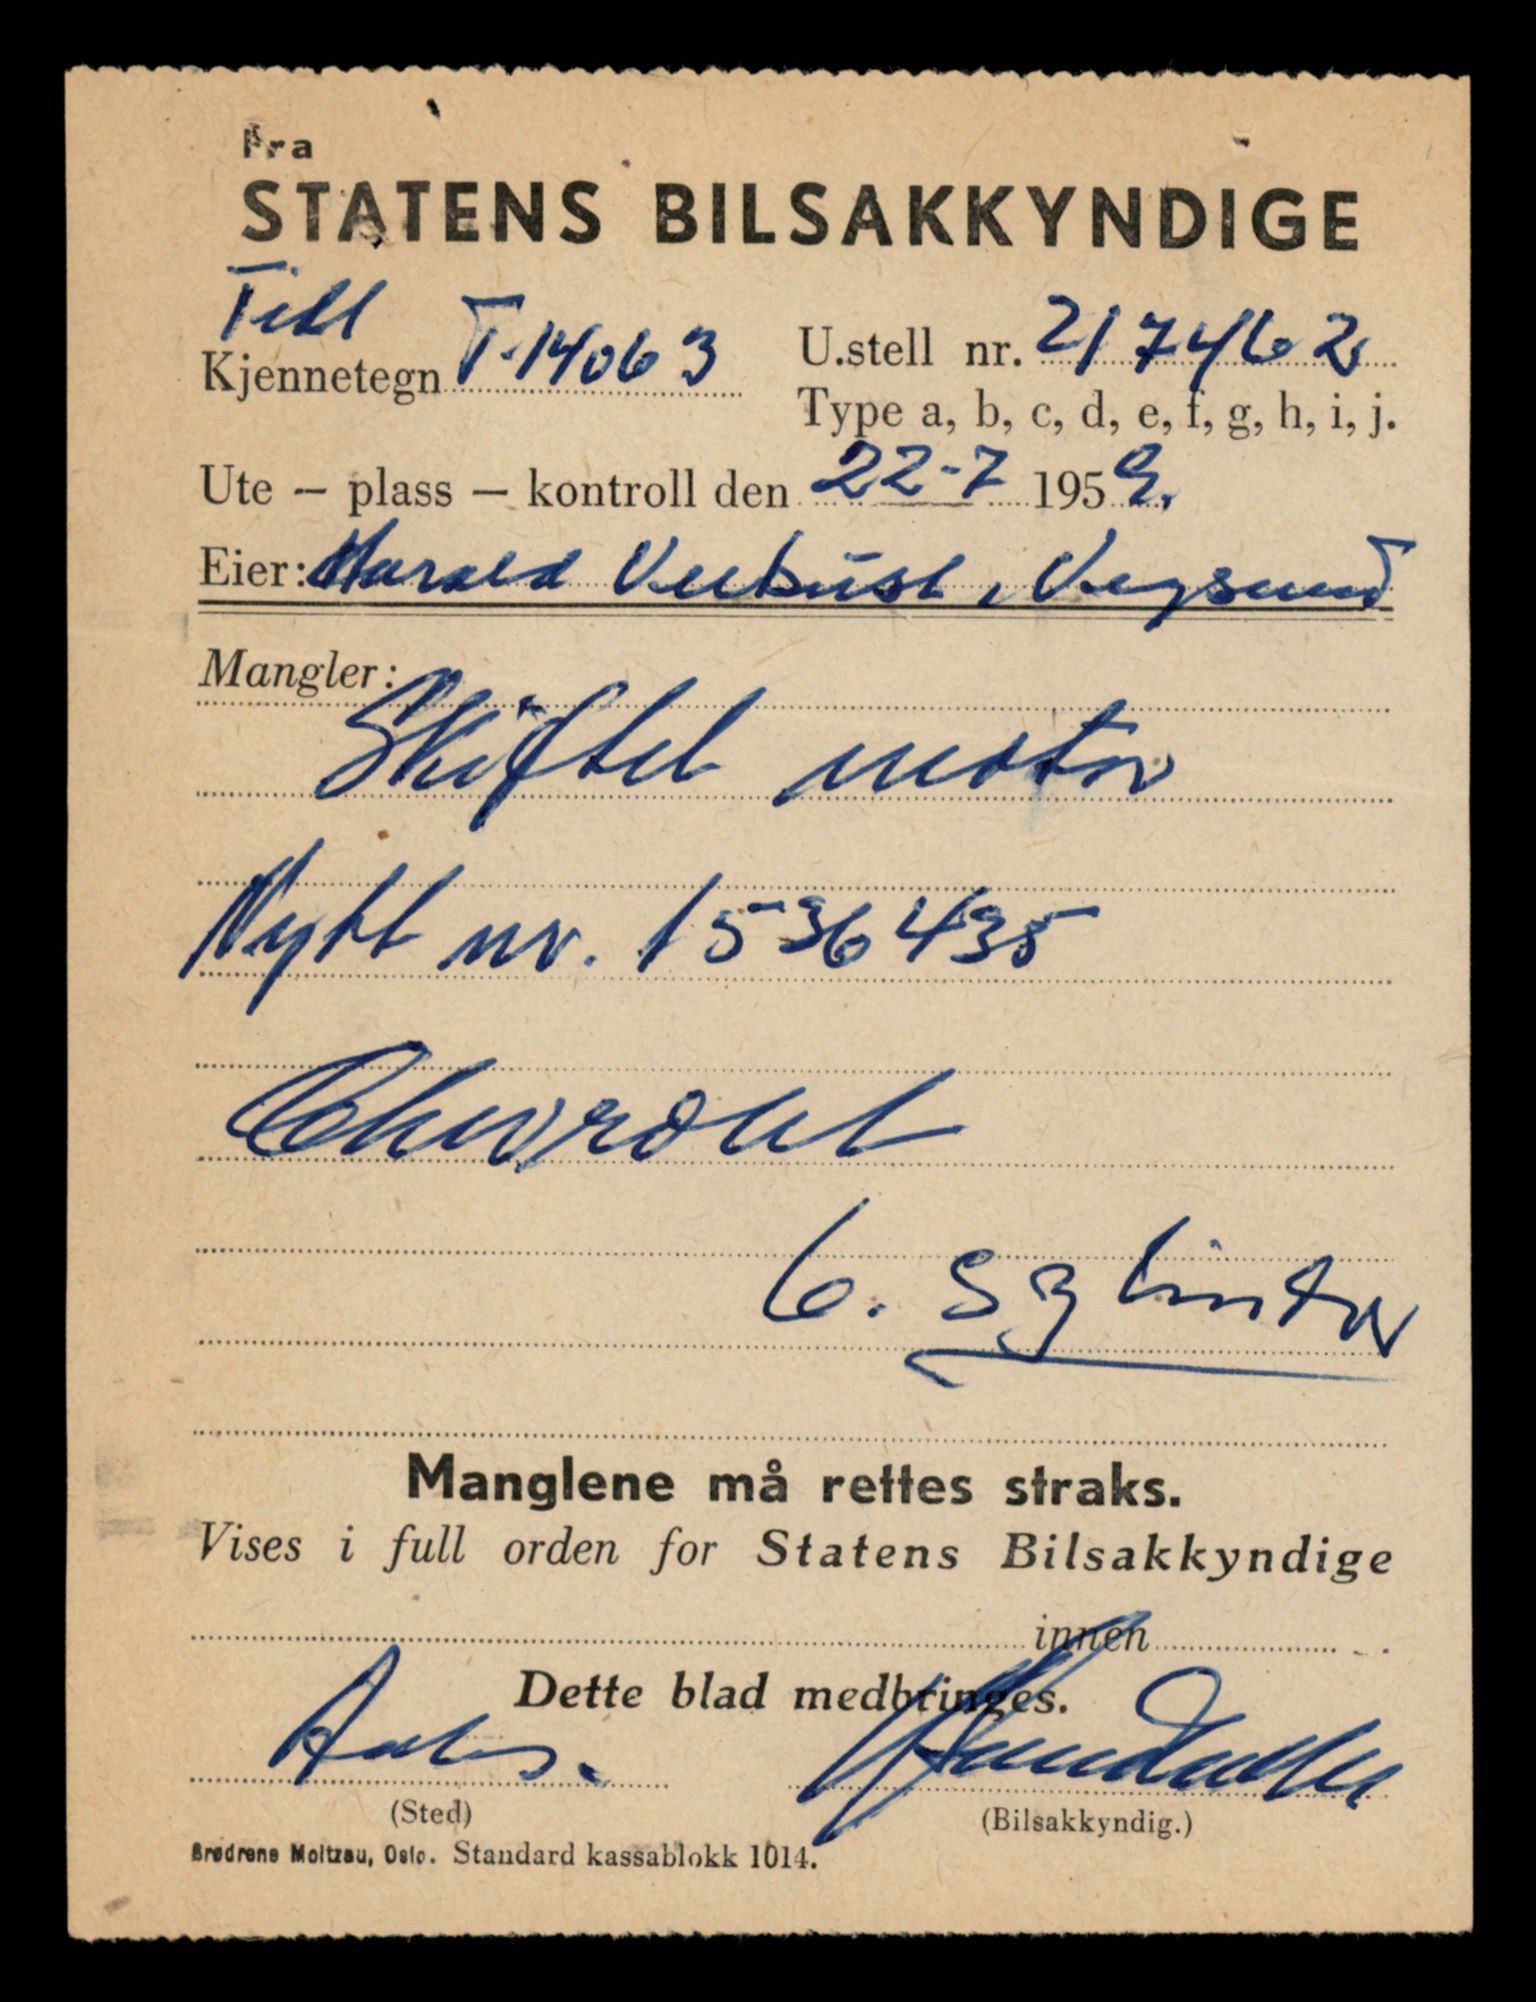 Fra
STATENS BILSAKKYNDIGE
Till
Kjennetegn T-14063 U.stell nr. 217462
Type a, b, c, d, e, f, g, h, i, j.
Ute – plass – kontroll den 22-7 1959.
Eier: Harald , Vegsund
Mangler:
Skiftet motor
Nytt nr. 1536435
Chevrolet
6. sylinder
Manglene må rettes straks.
Vises i full orden for Statens Bilsakkyndige
innen
Dette blad medbringes.
Aales.
(Sted) (Bilsakkyndig.)
Brødrene Moltzau, Oslo. Standard kassablokk 1014.